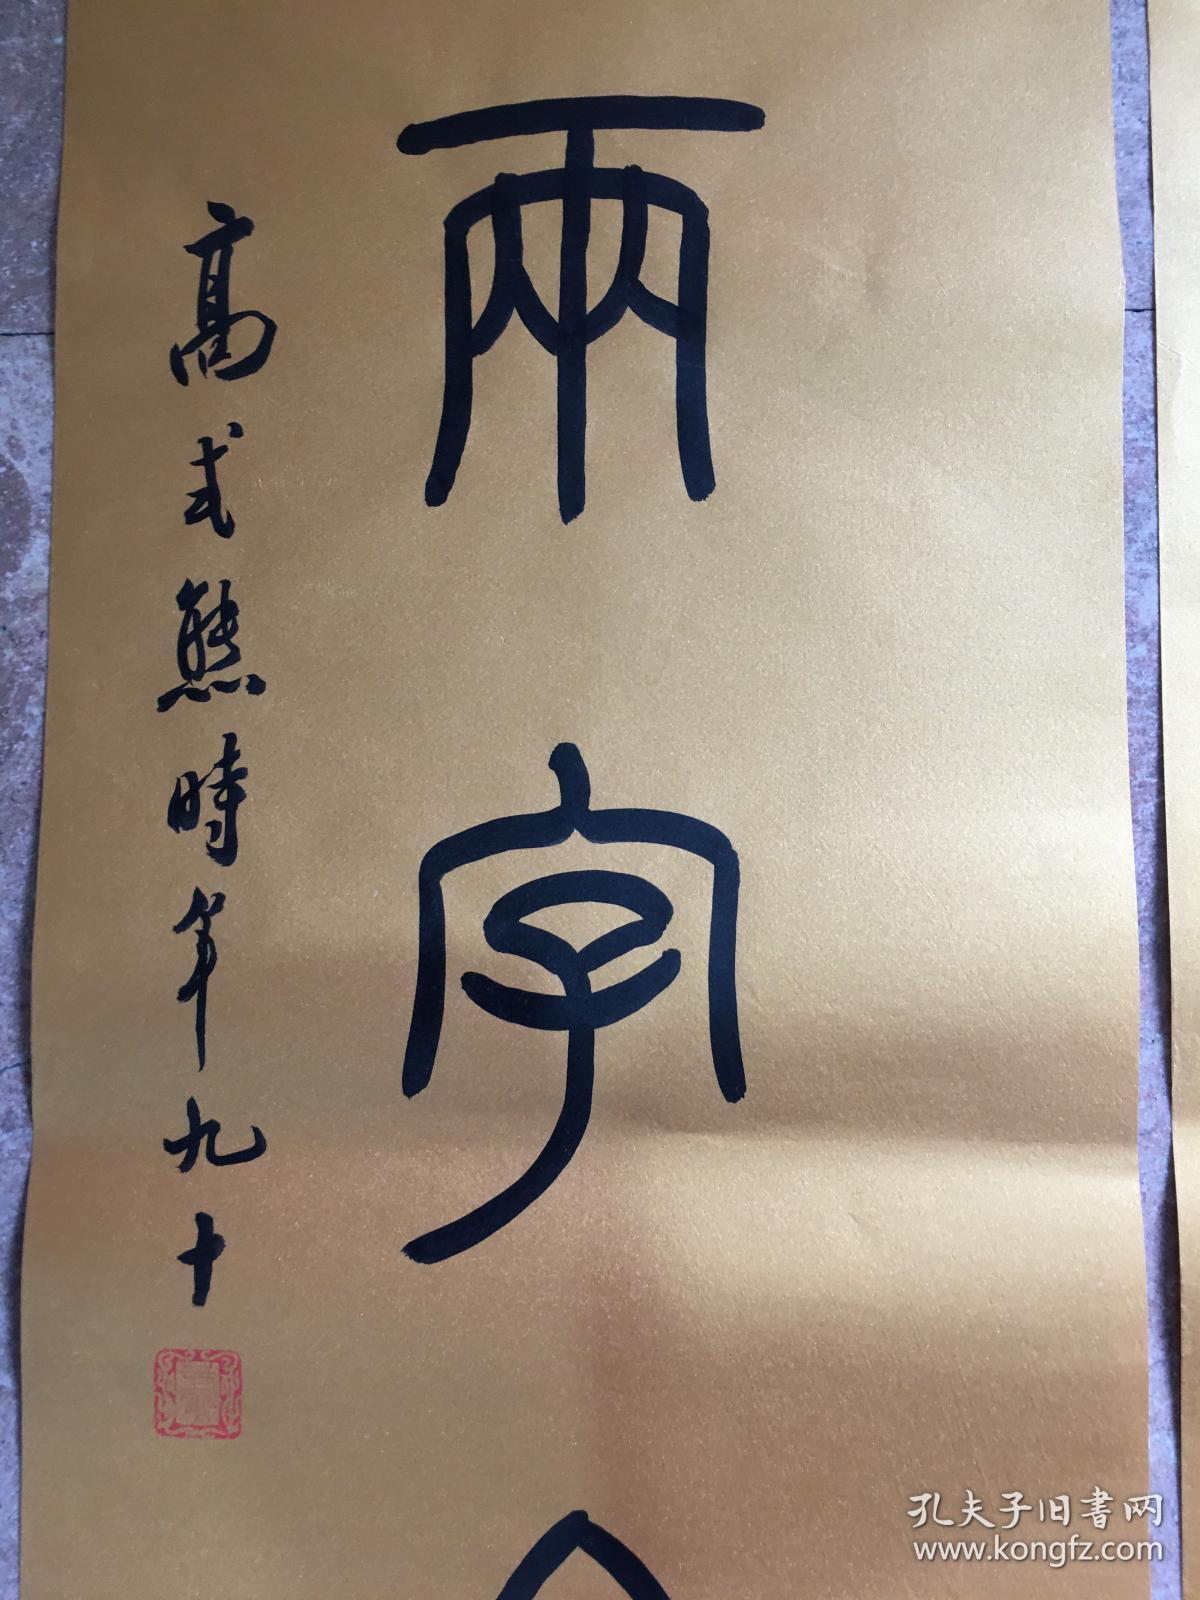 兩字
高式熊時年九十
孔夫子旧書网
www.kongfz.com